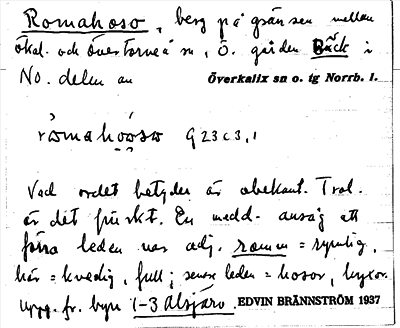 Romahoso, berg på gränsen mellan
ökal. och övertorneå sn, ö. gården Bäck i
No. delen av Överkalix sn o. tg Norrb. l.
råmahoåso G 23 c 3, 1
Vad ordet betyder är obekant. Trol.
är det finskt. En medd. ansåg att
förra leden var adj. romm = rymlig,
här = kvedig, full; senare leden = hosor, byxor.
Uppg. fr. byn 1-3 Alsjärv. EDVIN BRÄNNSTRÖM 1937